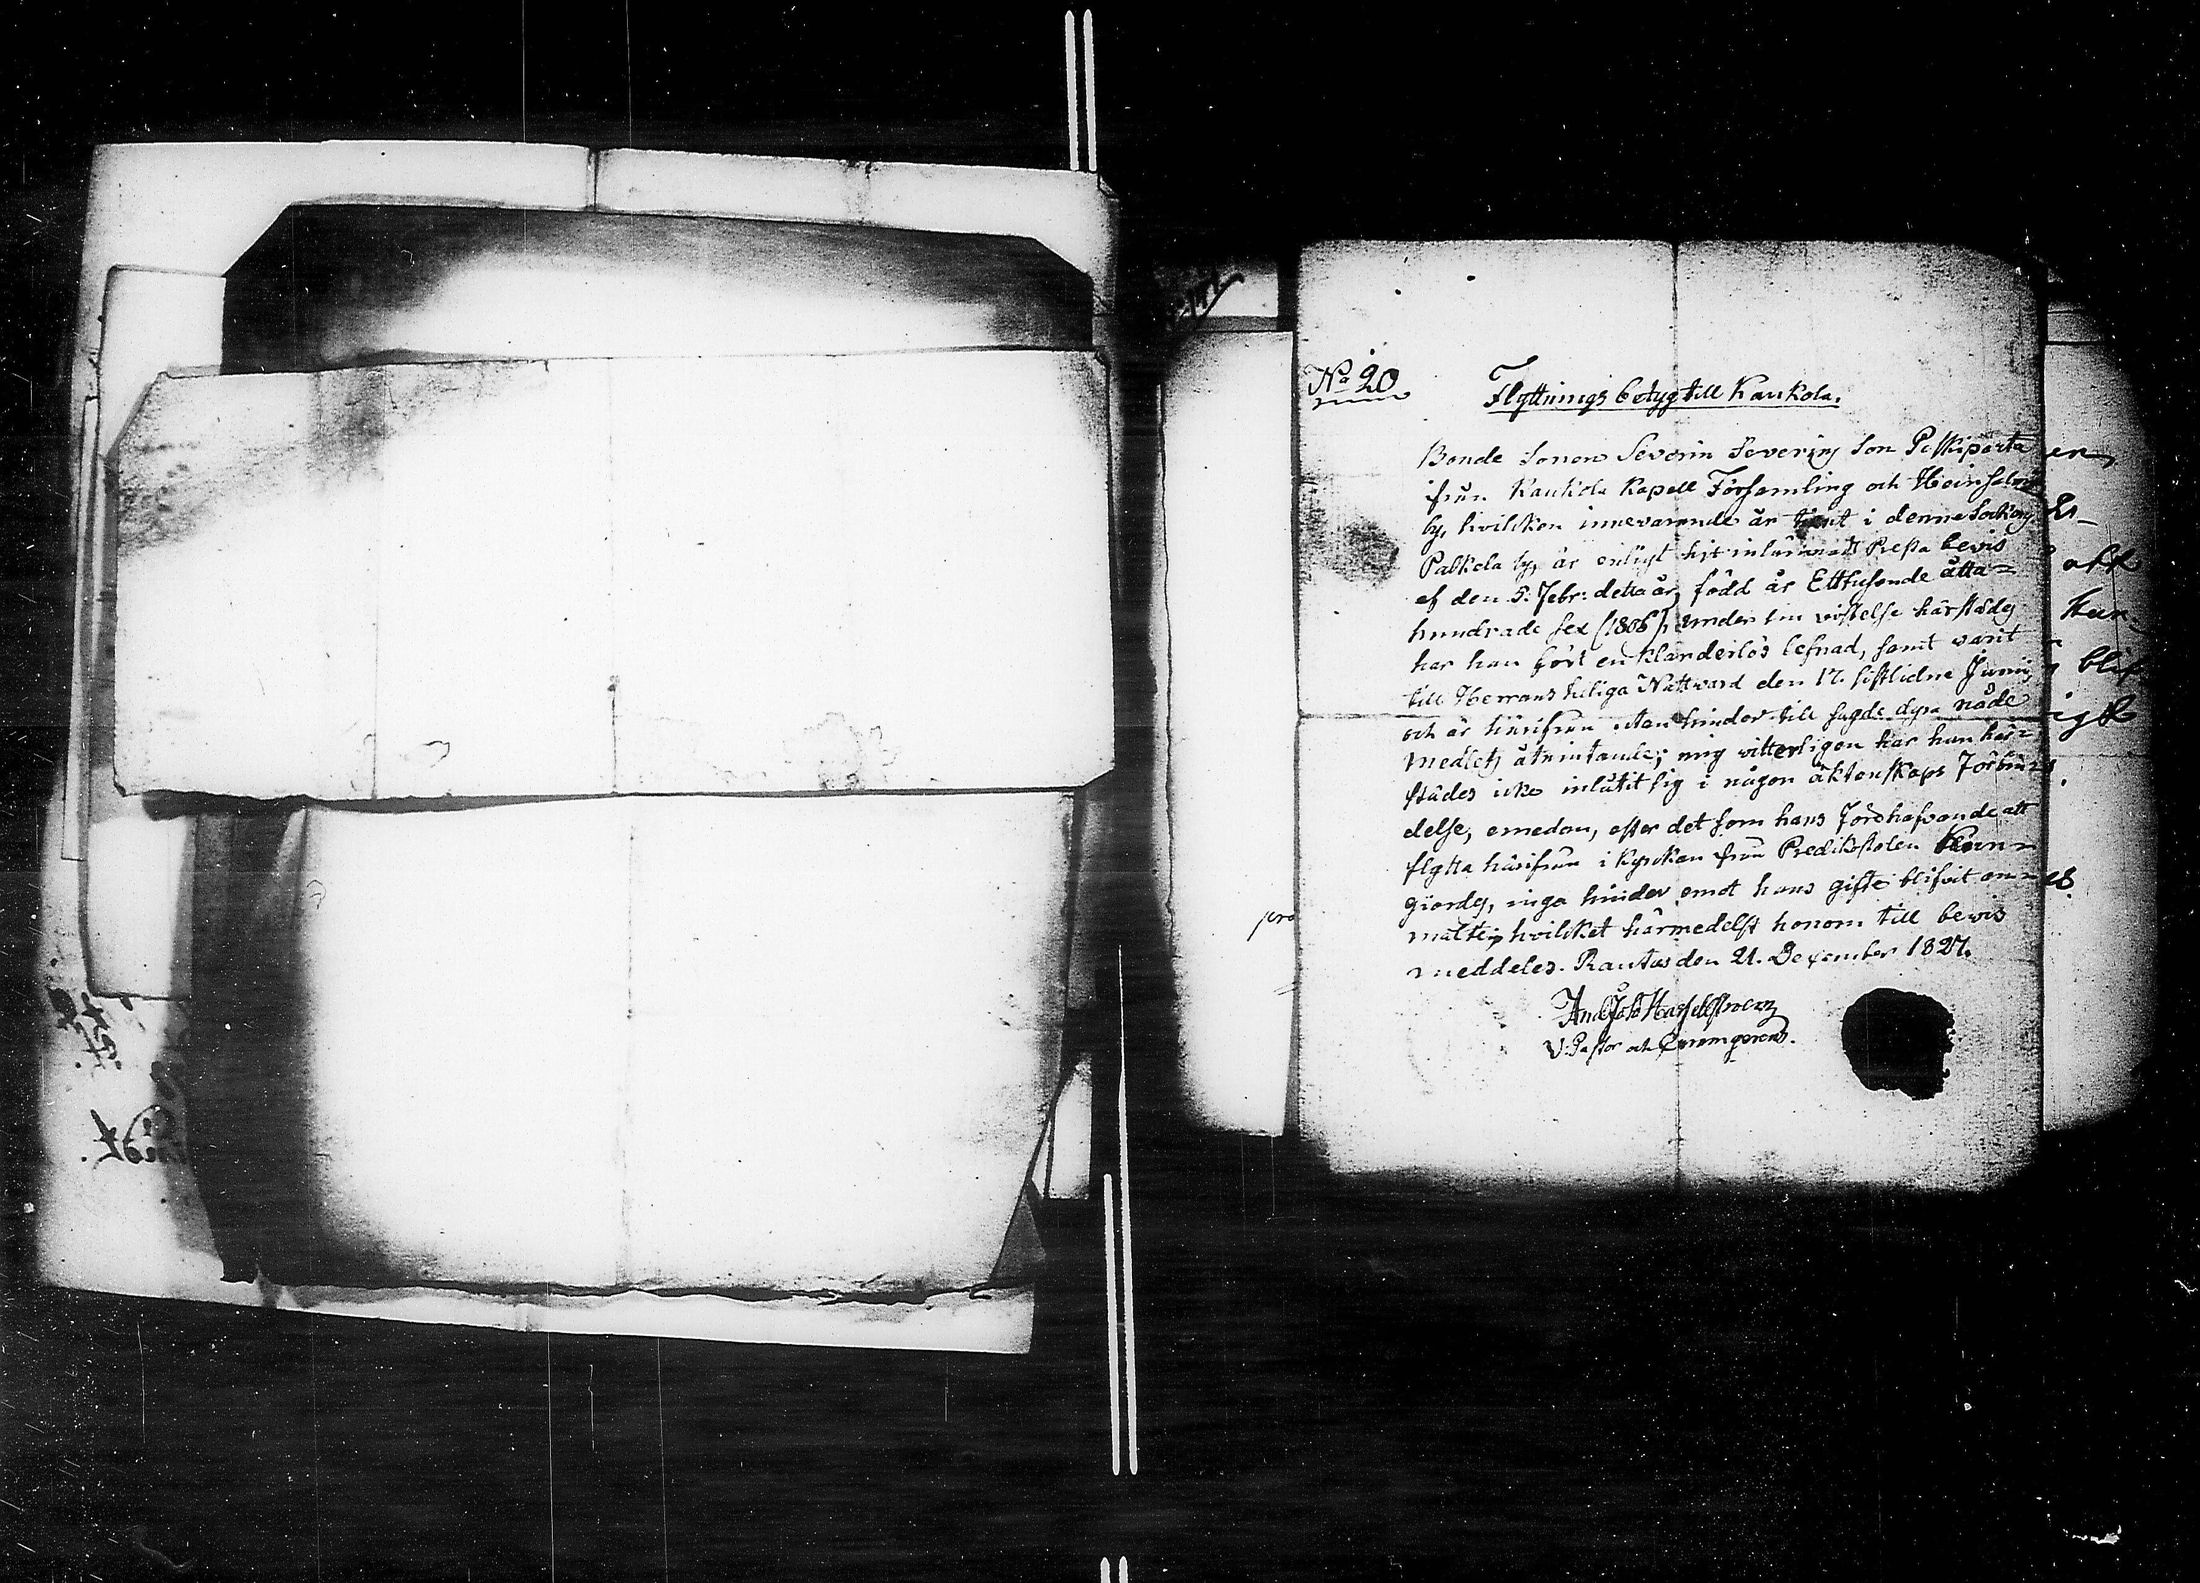 No 20
Flyttnings betyg till Kaukola.
Bonde Sonen Severin Severins Son Peskiparta
ifrån Kaukola Kapell Församling och
by, hvilcken innevarande år tient i denne Sockens
Palkela by, är enligt hit inlämnadt Presta bevis
af den 5. Febr: detta år, född år Ettusende åtta=
hundrade sex (1806), under sin vistelse härstädes
har han fört en klanderlös lefnad, samt varit
till Herrans heliga Nattvard den 17. sistlidne Junij
och är härifrån utan hinder till sagde dyra nåde
medlets åtnjutande; mig vitterligen har han här=
städes icke inlåtit sig i någon äktenskaps Förbin=
delse, emedan, efter det som hans Förehafvande att
flytta härifrån i kyrckan från Predikostolen Kun=
giordes, inga hinder emot hans gifte blifvit an=
mälte; hvilcket härmedelst honom till bevis
meddeles. Rautus den 21. December 1827.
And Joh Hasselstroem
V: Pastor och
pro
er,
att
Kun=
blif
igt